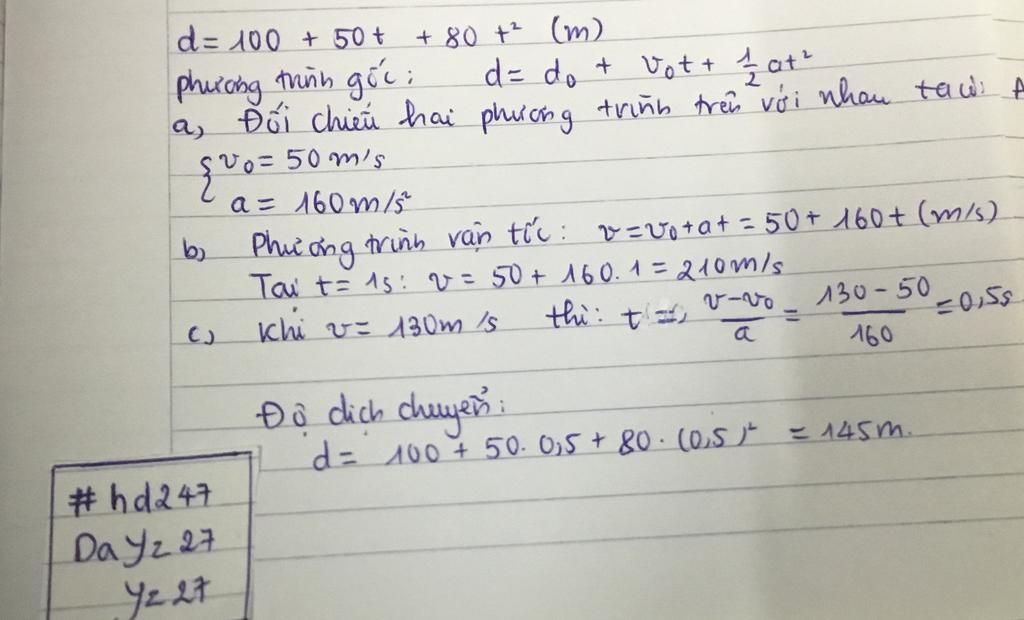 d = 100 + 50t + 80t² (m)
phương trình gốc: d = d₀ + v₀t + 1/2 at²
a, Đối chiếu hai phương trình trên với nhau ta có:
{ v₀ = 50 m/s
a = 160 m/s²
b, Phương trình vận tốc: v = v₀ + at = 50 + 160t (m/s)
Tại t = 1s: v = 50 + 160.1 = 210 m/s
c, Khi v = 130 m/s thì: t = (v-v₀)/a = (130-50)/160 = 0,5s
Độ dịch chuyển:
d = 100 + 50.0,5 + 80.(0,5)² = 145m.
# hd247
Da Yz 27
Yz 27